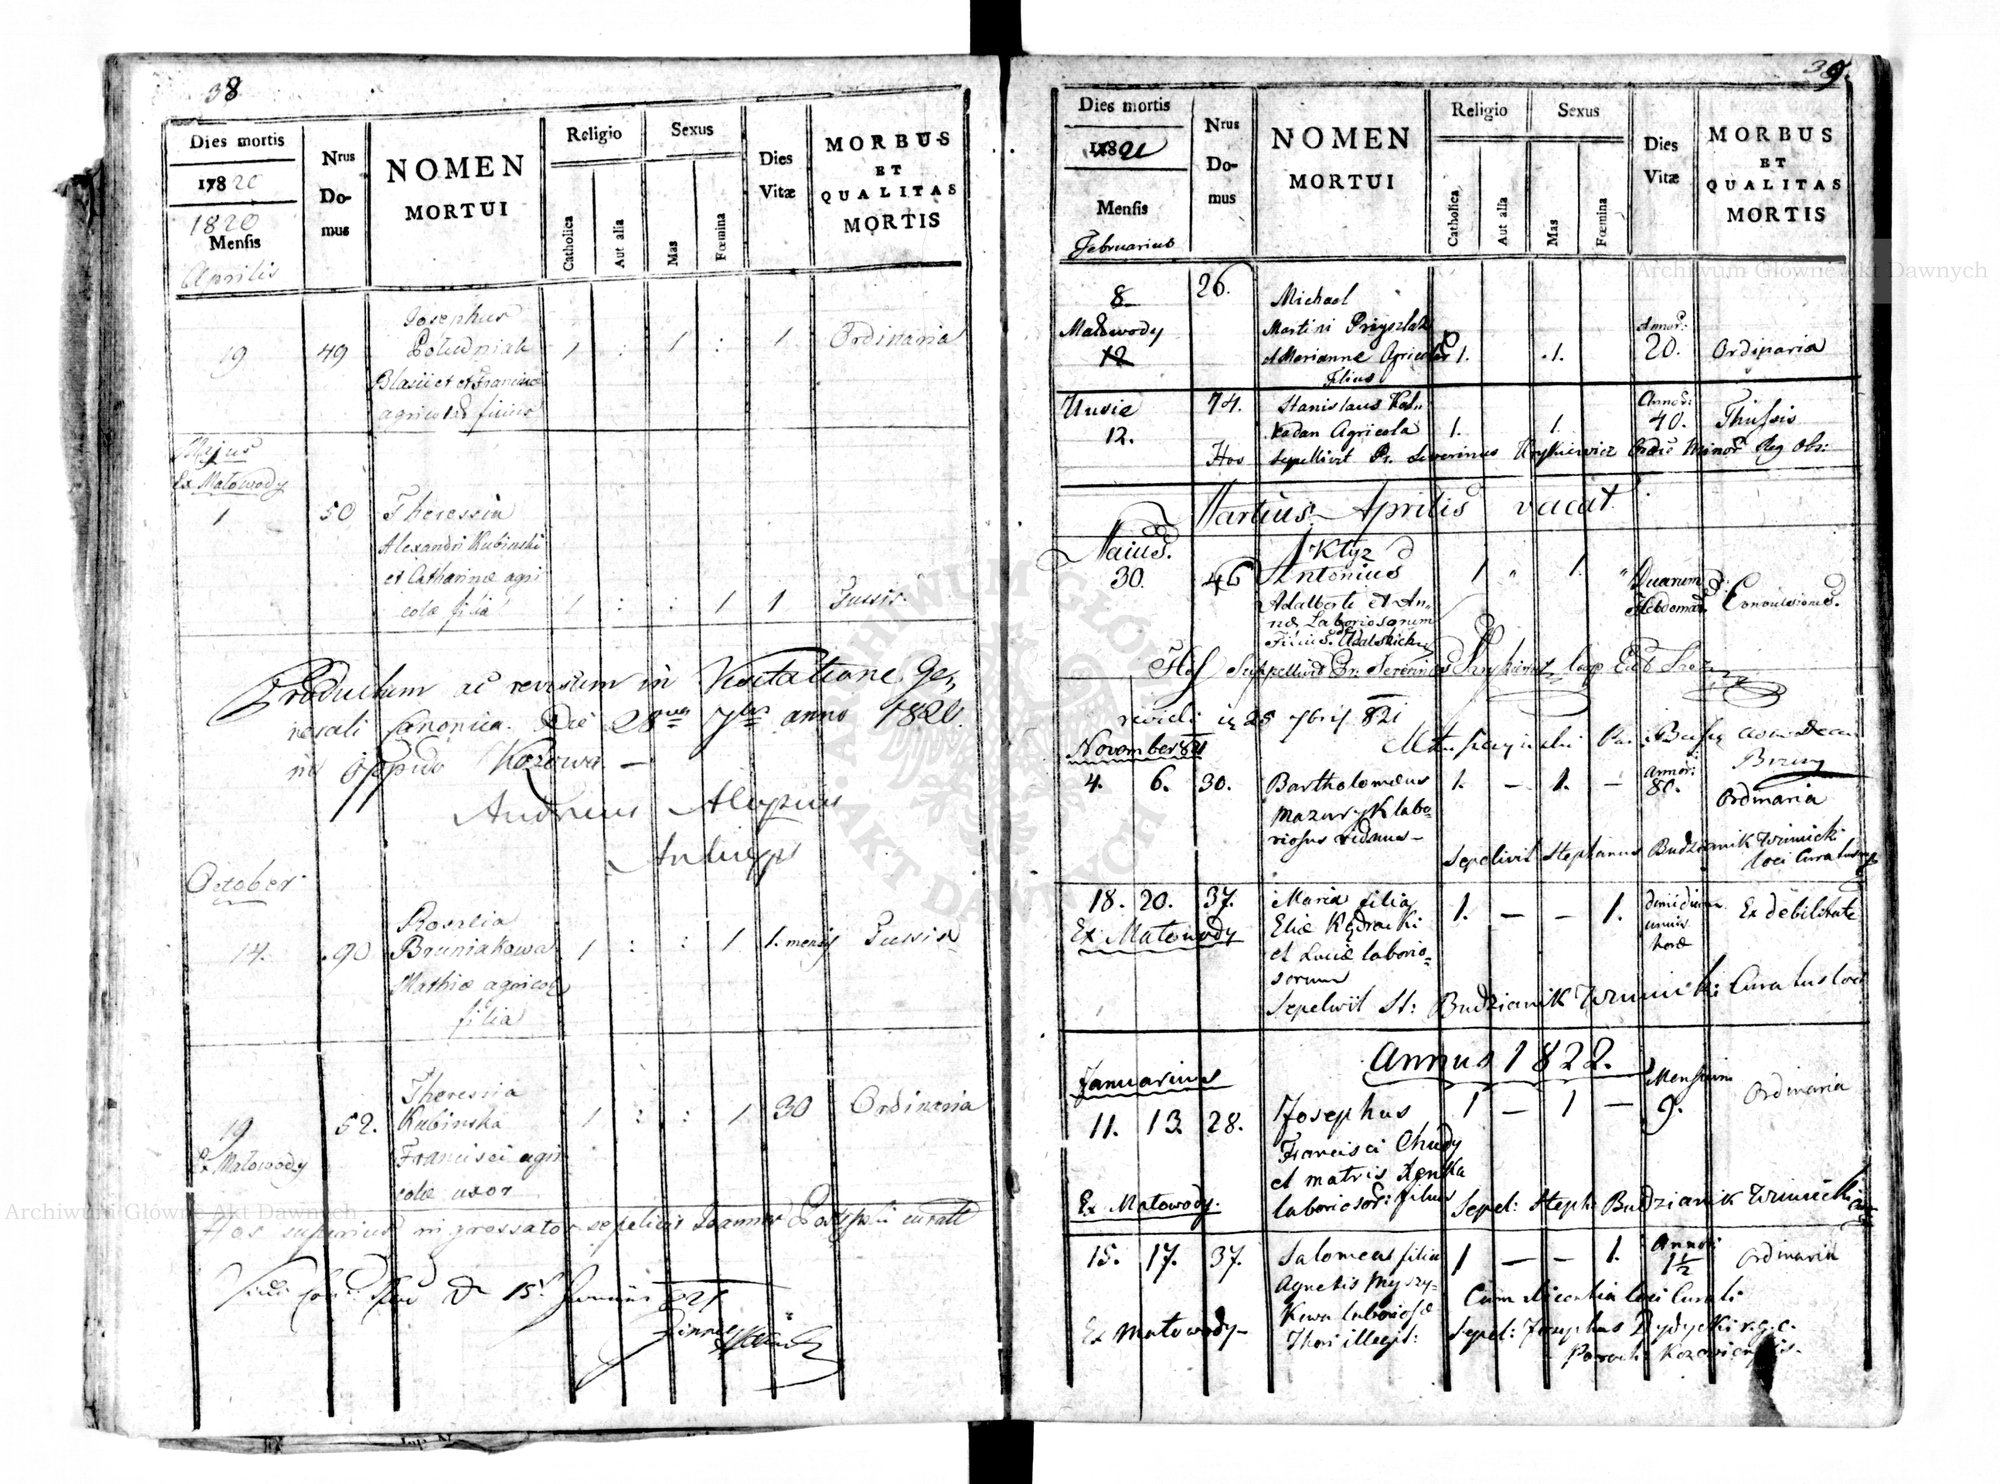 38
Dies mortis
Nrus
Do-
mus
NOMEN
MORTUI
Religio
Sexus
Catholica
Aut alia
Mas
Fœmina
Dies
Vitæ
MORBUS
ET
QUALITAS
MORTIS
178 20
1820
Menſis
Aprilis
Josephus
19 49 Południak 1 : 1 : 1. Ordinaria
Blasii et et Franciscæ
agricolæ filius
Majus
Ex Małowody
1 50 Theressia
Alexandri Kubinski
et Catharinæ agri
colæ filia 1 : : 1 1 Tussis.
Productum ac revisum in Visitatione Ge,,
nerali Canonica. Die 28va 7bris anno 1820.
in Oppido Kozowa. —
Andreas Aloysius
October
Rosalia
14. 90 Bruniakowa 1 : : 1 1. mensis Tussis
Mathiæ agricolæ
filia
Theressia
19 52. Kubinska 1 : : 1 30 Ordinaria
Ex Małowody Francisci agri
colæ uxor
Hos superius in grossator sepelivit Joannes
15 Junii 821
39.
Dies mortis
1821
Menſis
Februarius
Nrus
Do-
mus
NOMEN
MORTUI
Religio
Sexus
Catholica
Aut alia
Mas
Fœmina
Dies
Vitæ
MORBUS
ET
QUALITAS
MORTIS
8 26. Michael
Małowody Martini Przyszlak Annor:
12 et Marianne Agricolar 1. 1. 20. Ordinaria
Filius
Uusie 74. Stanislaus Kol,, Annor:
12. kadan Agricola 1. 1. 40. Thussis
Hos sepellivit Pr. Severinus Krykiewicz Ord: Minor Reg Obs:
Martius. Aprilis vacat.
Maius. Kłyz
30. 46 Antonius 1 " 1. " Duarum
Adalberti et An,, Hebdomad. Convulsiones.
næ Laboriosorum
Filius
Hos Seppellivit Pr. Severinus
November 821
4. 6. 30. Bartholomeus 1. — 1. — Annor: 80. Ordinaria
Mazuryk labo-
riosus viduus —
Sepelivit Stephanus Budzianik Winnicki
loci Curatus
18. 20. 37. Maria filia 1. — — 1. dimidium Ex debilitate
Ex Małowody Eliæ Kędracki unius
et Luciæ laborio= horæ
sorum
Sepelivit St: Budzianik Winnicki Curatus loci
Annus 1822.
Januarius
11. 13. 28. Josephus 1 — 1 — Mensium 9. Ordinaria
Francisci Chudy
et matris
Ex Małowody. laboriosor: filius Sepel: Steph: Budzianik Winnicki
15. 17. 37. Salomea filia 1 — — 1. Annor: 1½ Ordinaria
Agnetis Myszy-
kowa laboriosæ Cum licentia loci Curati
Ex Małowody — Thori illegit: Sepel: Josephus Dydycki r.g.c.
Paroch: Kozoviensis.
Archiwum Główne Akt Dawnych
Archiwum Główne Akt Dawnych
ARCHIWUM GŁÓWNE AKT DAWNYCH